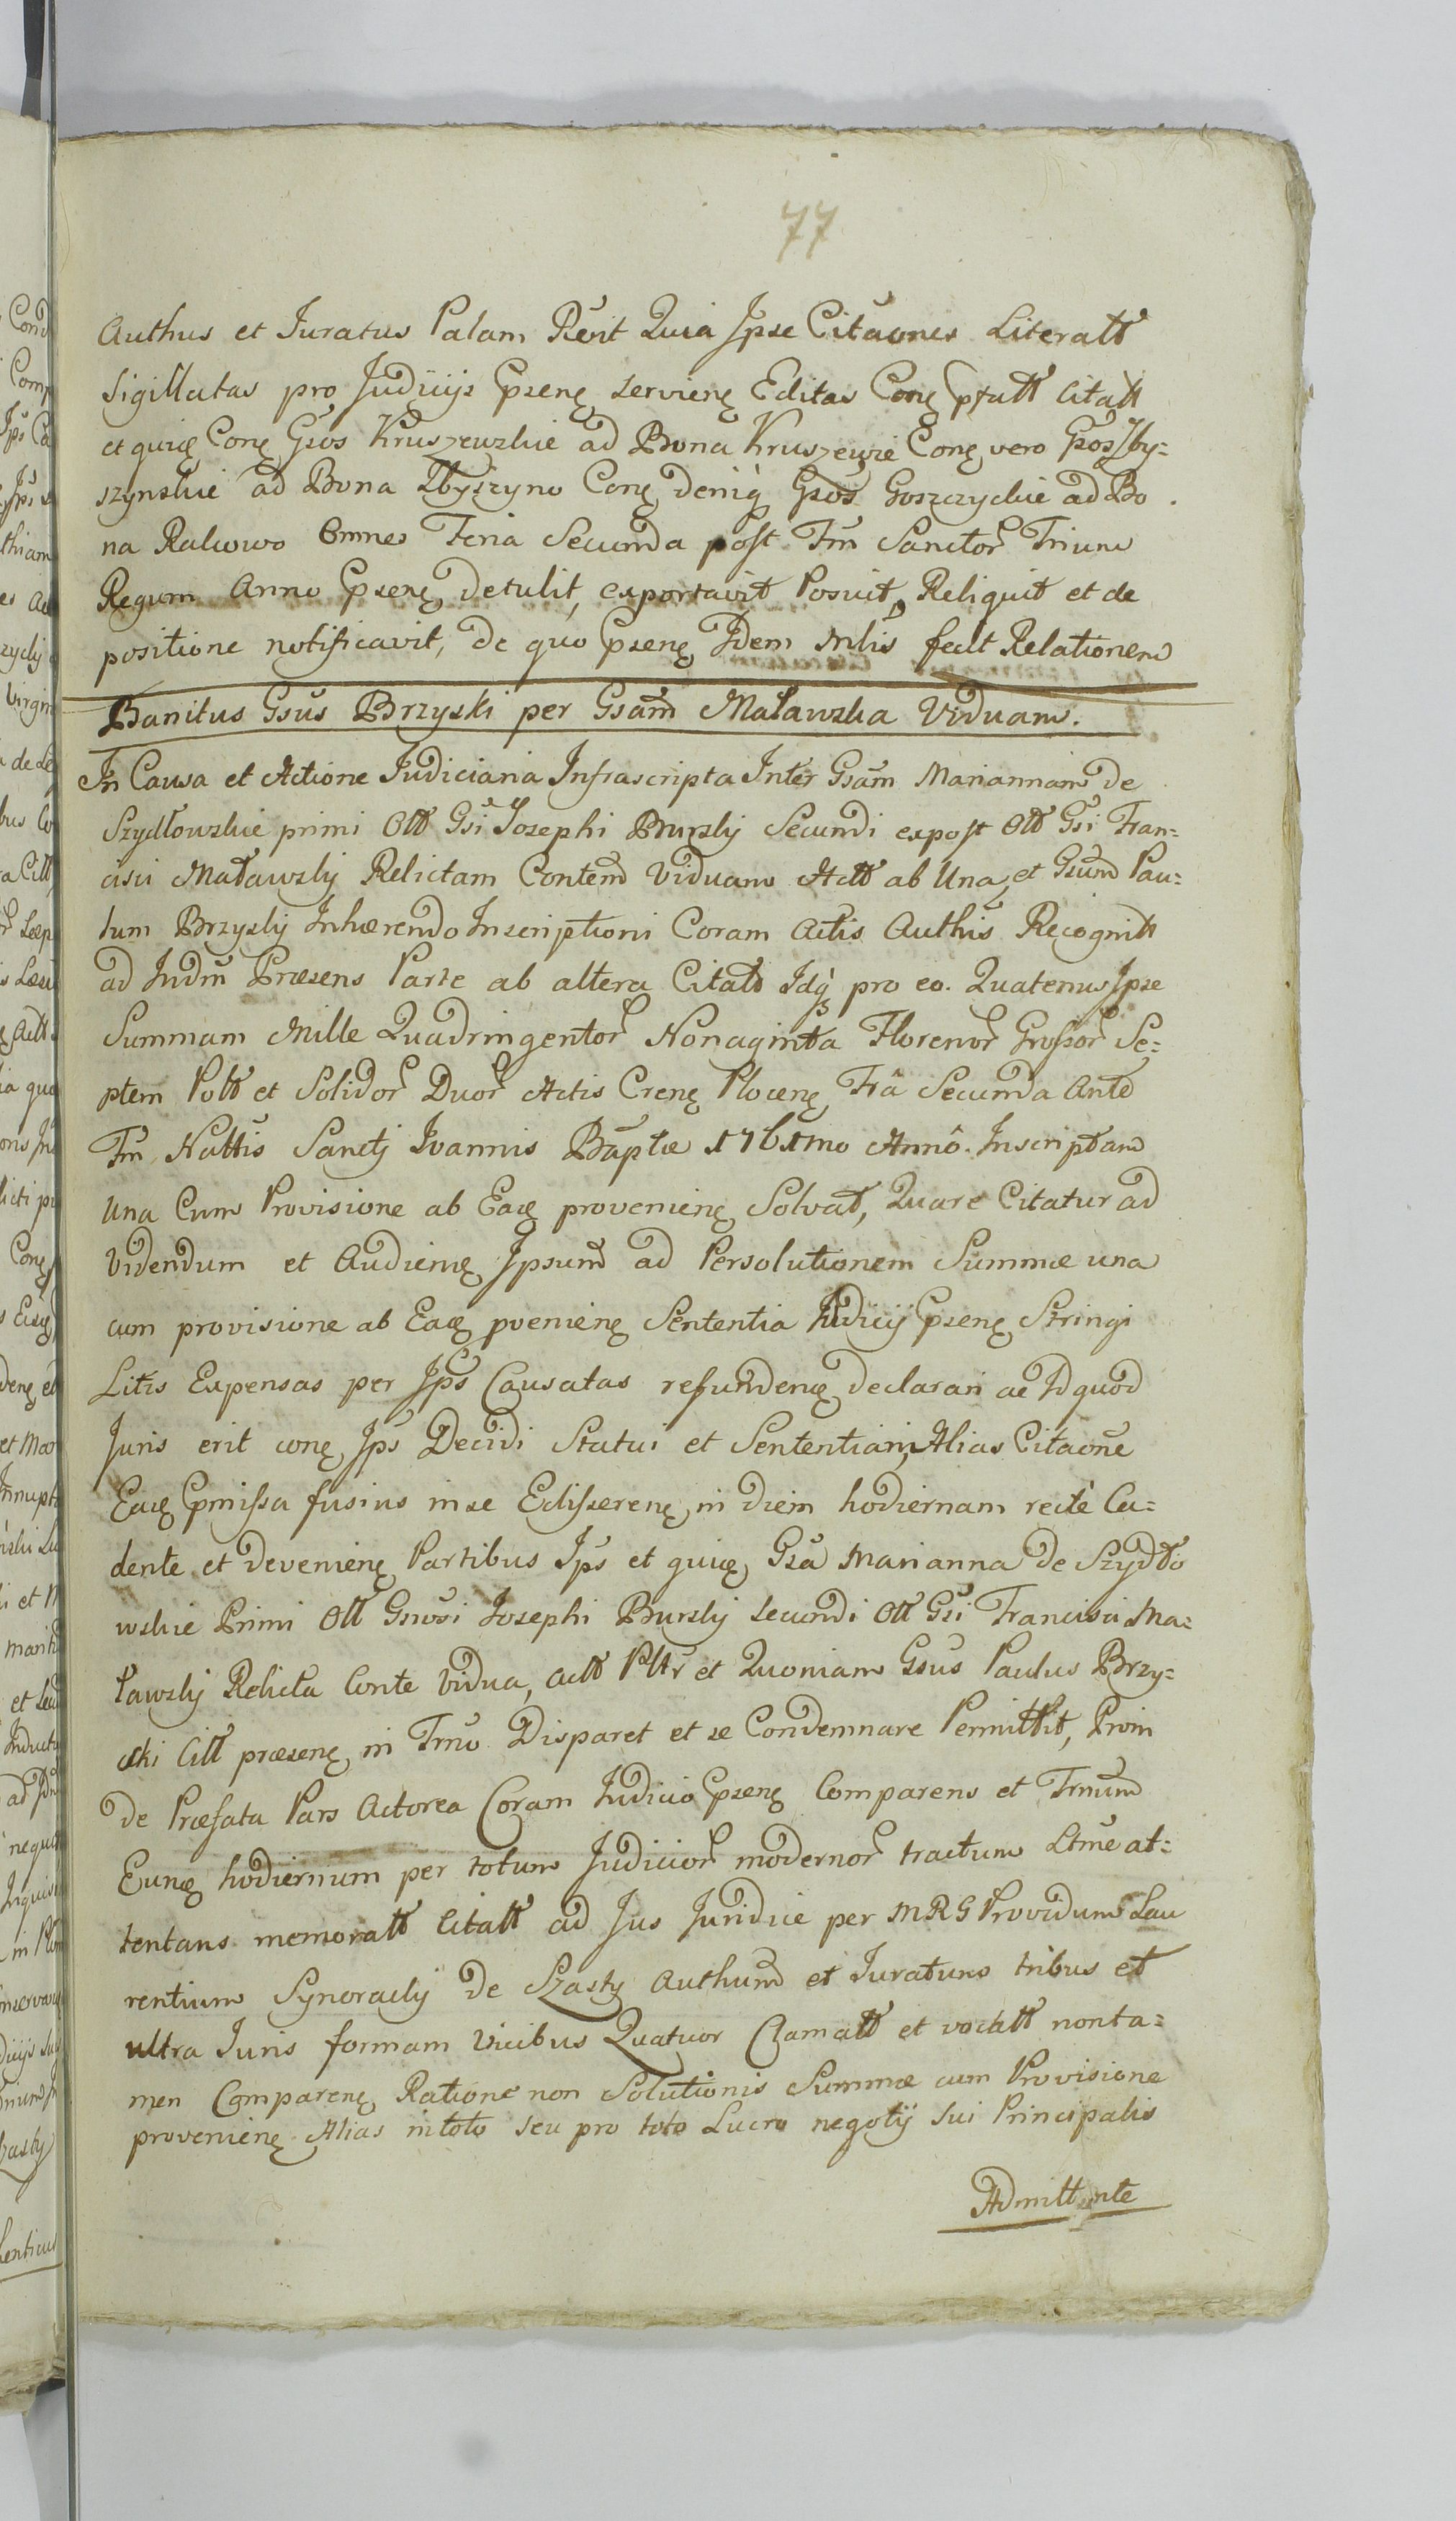 77
Authus et Juratus Palam Rĕvit Quia Ipse Citãones Literatt
Sigillatas pro Judicijs Epsenę servienę Editas Conę pfatt Citatt
et quię Conę Gsos Kruszewskie ad Bona Kruszewie Conę vero Gsos Zby=
szynskie ad Bona Zbyszyno Conę deniq̀ Gsos Goszczyckie ad Bo
na Rakowo Omnes Feria Secunda post Fm̃ Sanctor̃ Trium
Regum Anno Epsenę detulit, exportavit Posuit, Reliquit et de
positione notificavit, de quo Epsenę Idem Mlis fecit Relationem
Banitus Gsus Brzyski per Gsam̃ Maławska Viduam.
In Causa et Actione Judiciaria Infrascripta Inter Gsam̃ Mariannam de
Szydłowskie primi Ott Gsi Josephi Burskÿ Secundi expost Ott Gsi Fran=
cisci Maławskÿ Relictam Contem̃ Viduam Actt ab Una, et Gsum̃ Pau=
lum Brzyskÿ Inhærendo Inscriptioni Coram Actis Authis Recognitt
ad Judm̃ Præsens Parte ab altera Citatt Idq̀ pro eo. Quatenus Ipse
Summam Mille Quadringentor̃ Nonaginta Florenor̃ Grossor̃ Se=
ptem Poltt et Solidor̃ Duor̃ Actis Crenę Plocenę Frâ Secunda Ante
Fm̃ Nattis Sanctj Joannis Bãptæ 1761mo Annô. Inscriptam
una Cum Provisione ab Eaę provenienę Solvat, Quare Citatur ad
Videndum et Audienę Ipsum̃ ad Persolutionem Summæ una
cum provisione ab Eaę pvenienę Sententia Judicij Epsenę Stringi
Litis Expensas per Ips̃ Causatas refundenę declarari ac Id quod
Juris erit conę Ips̃ Decidi Statui et Sententiari, Alias Citaõne
Eaę Epmissa fusius in se Edisserenę in diem hodiernam rectè Ca=
dente et devenienę Partibus Ips̃ et quię Gsã Marianna de Szydło
wskie Primi Ott Gnosi Josephi Burskÿ secundi Ott Gsi Francisci Ma=
ławskÿ Relicta Conte Vidua, Actt Pttr et Quoniam Gsus Paulus Brzy=
ski Citt præsenę in Trm̃o Disparet et se Condemnare Permittit, Proin
de Præfata Pars Actorea Coram Judicio Epsenę Comparens et Trmum̃
Eunę hodiernum per totum Judicior̃ modernor̃ tractum Ltme at=
tentans memoratt Citatt ad Jus Juridice per MRG Providum Lau
rentium Synoracky de Szasty Authum̃ et Juratum tribus et
ultra Juris formam Vicibus Quatuor Clamatt et vocatt nonta=
men Comparenę Ratione non Solutionis Summæ cum Provisione
provenienę Alias intoto seu pro toto Lucro negotÿ sui Principalis
Admittente